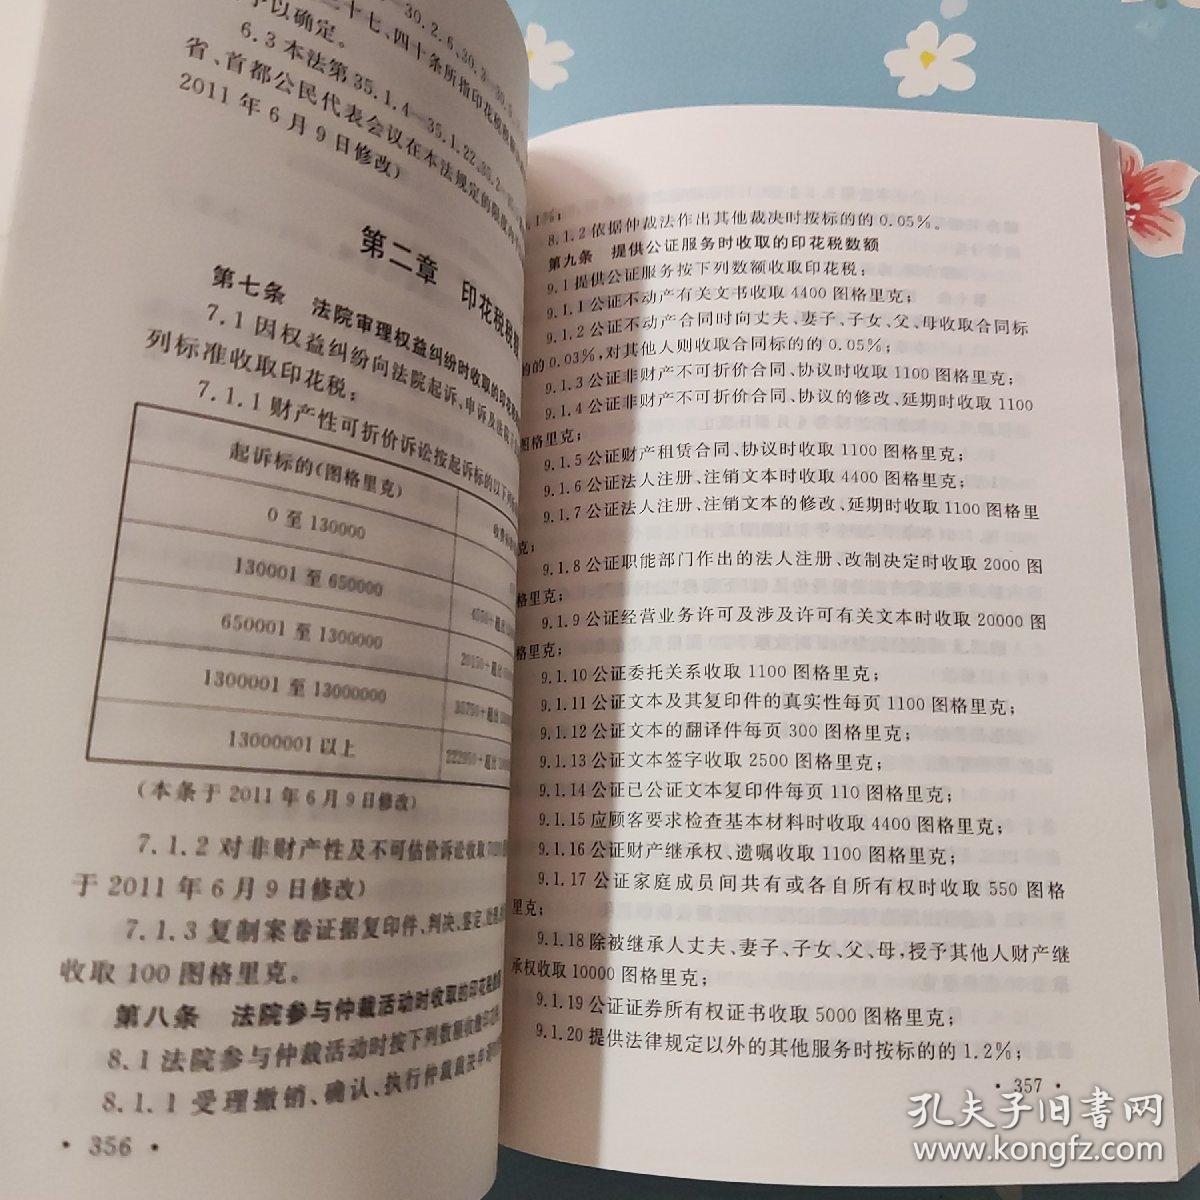 30.2.6、30.3—30.5
二十七、四十条所指印花税数额
予以确定。
6.3本法第35.1.4—35.1.22、35.2—
省、首都公民代表会议在本法规定的限度内
2011年6月9日修改）
第二章 印花税税
第七条 法院审理权益纠纷时收取的印花税
7.1因权益纠纷向法院起诉、申诉及法院
列标准收取印花税：
7.1.1财产性可折价诉讼按起诉标的以下列
起诉标的(图格里克)
0至130000
130001至650000
650001至1300000
1300001至13000000
13000001以上
222950+超出
（本条于2011年6月9日修改）
7.1.2对非财产性及不可估价诉讼收取
于2011年6月9日修改）
7.1.3复制案卷证据复印件、判决、鉴定
收取100图格里克。
第八条 法院参与仲裁活动时收取的印花税数额
8.1法院参与仲裁活动时按下列数额收取印花
8.1.1受理撤销、确认、执行仲裁裁决申请
·356·
1%；
8.1.2依据仲裁法作出其他裁决时按标的的0.05%。
第九条 提供公证服务时收取的印花税数额
9.1提供公证服务按下列数额收取印花税；
9.1.1公证不动产有关文书收取4400图格里克；
9.1.2公证不动产合同时向丈夫、妻子、子女、父、母收取合同标
的的0.03%，对其他人则收取合同标的的0.05%；
9.1.3公证非财产不可折价合同、协议时收取1100图格里克；
9.1.4公证非财产不可折价合同、协议的修改、延期时收取1100
图格里克；
9.1.5公证财产租赁合同、协议时收取1100图格里克；
9.1.6公证法人注册、注销文本时收取4400图格里克；
9.1.7公证法人注册、注销文本的修改、延期时收取1100图格里
克；
9.1.8公证职能部门作出的法人注册、改制决定时收取2000图
格里克；
9.1.9公证经营业务许可及涉及许可有关文本时收取20000图
格里克；
9.1.10公证委托关系收取1100图格里克；
9.1.11公证文本及其复印件的真实性每页1100图格里克；
9.1.12公证文本的翻译件每页300图格里克；
9.1.13公证文本签字收取2500图格里克；
9.1.14公证已公证文本复印件每页110图格里克；
9.1.15应顾客要求检查基本材料时收取4400图格里克；
9.1.16公证财产继承权、遗嘱收取1100图格里克；
9.1.17公证家庭成员间共有或各自所有权时收取550图格
里克；
9.1.18除被继承人丈夫、妻子、子女、父、母，授予其他人财产继
承权收取10000图格里克；
9.1.19公证证券所有权证书收取5000图格里克；
9.1.20提供法律规定以外的其他服务时按标的的1.2%；
·357·
孔夫子旧书网
www.kongfz.com